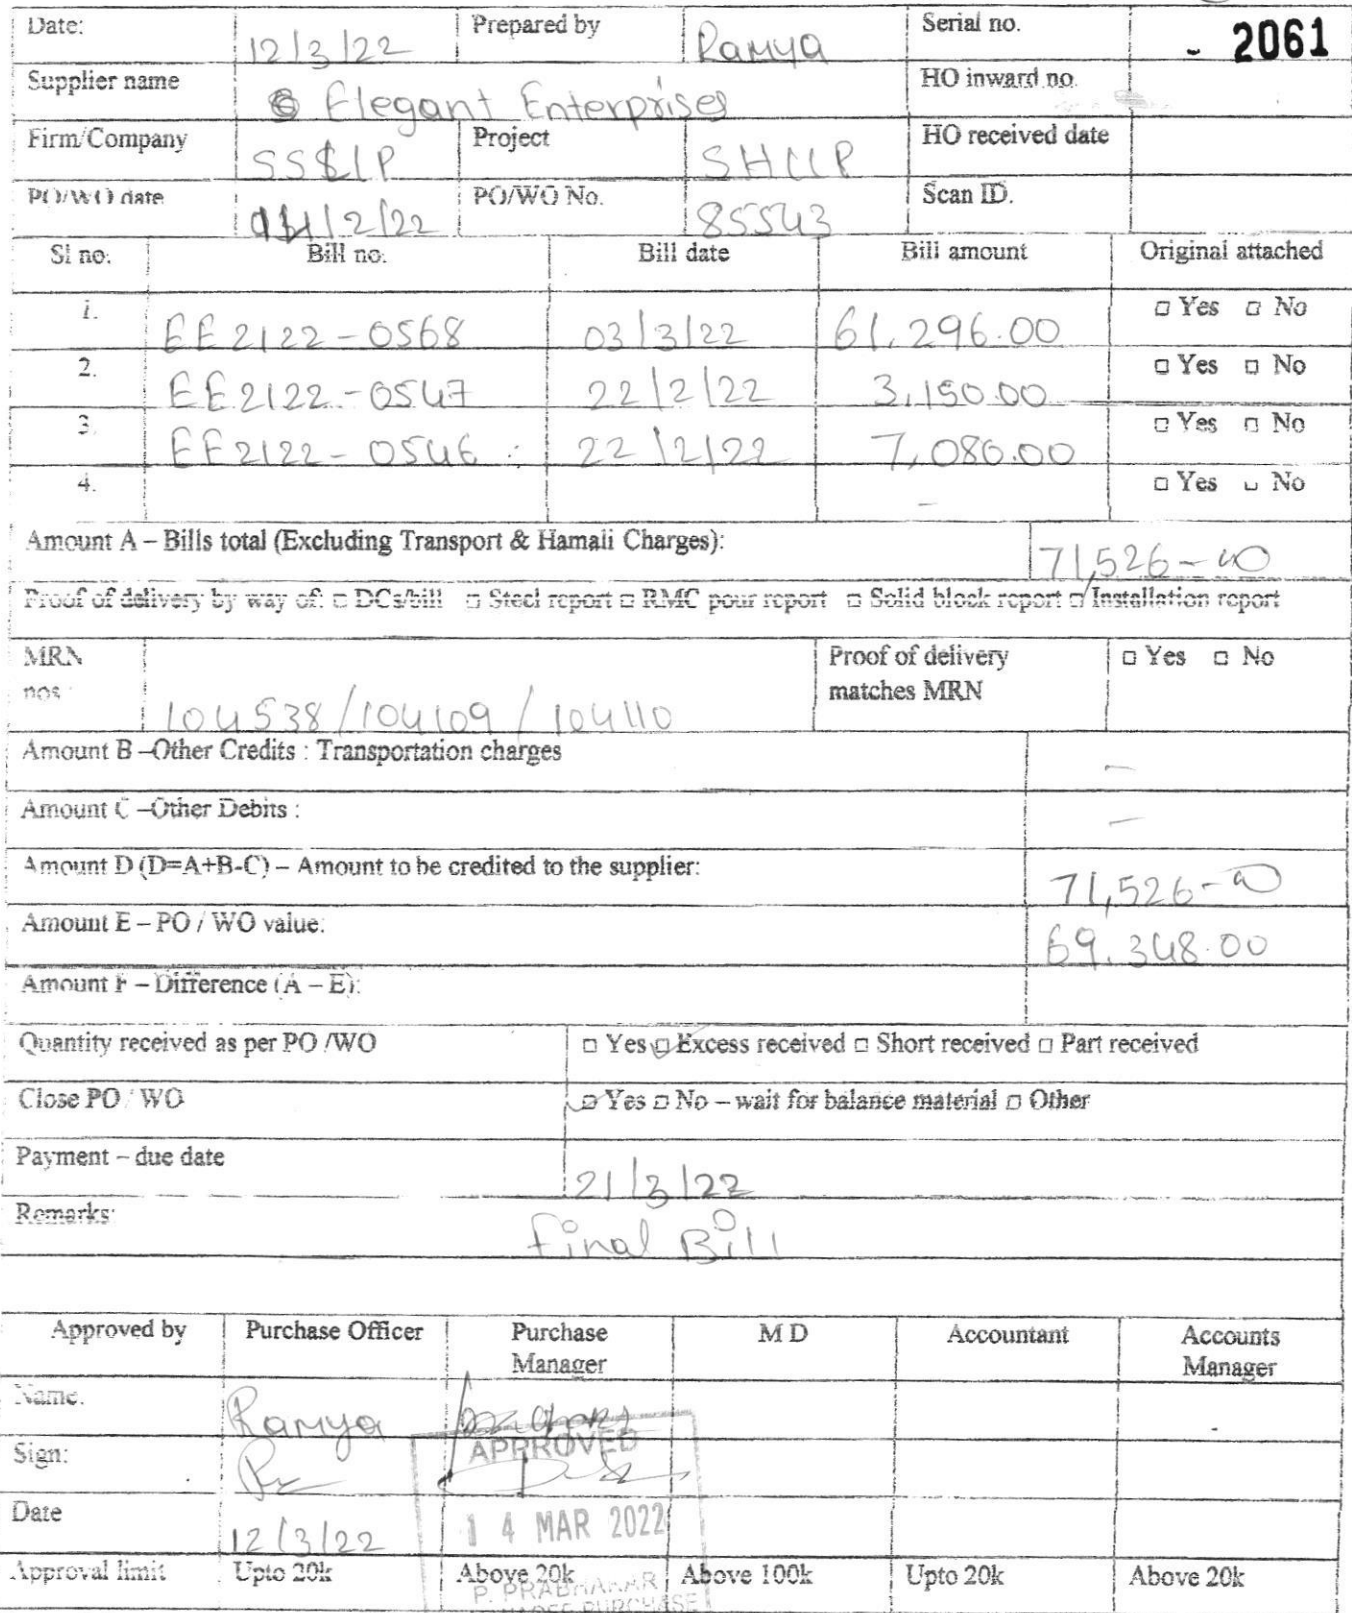 Date: 12/3/22 Prepared by Ramya Serial no. - 2061
Supplier name Elegant Enterprises HO inward no.
Firm/Company SSLLP Project SHLLP HO received date
PO/WO date /2/22 PO/WO No. 85543 Scan ID.
Sl no. Bill no. Bill date Bill amount Original attached
1. EE2122-0568 03/3/22 61,296.00 □ Yes □ No
2. EE2122-0547 22/2/22 3,150.00 □ Yes □ No
3. EE2122-0546 22/2/22 7,080.00 □ Yes □ No
4. - □ Yes □ No
Amount A – Bills total (Excluding Transport & Hamali Charges): 71,526-00
Proof of delivery by way of: □ DCs/bill □ Steel report □ RMC pour report □ Solid block report □ Installation report
MRN nos: 104538/104109/104110 Proof of delivery matches MRN □ Yes □ No
Amount B –Other Credits : Transportation charges -
Amount C –Other Debits : -
Amount D (D=A+B-C) – Amount to be credited to the supplier: 71,526-00
Amount E – PO / WO value: 69,348.00
Amount F – Difference (A – E):
Quantity received as per PO /WO □ Yes ☑ Excess received □ Short received □ Part received
Close PO / WO ☑ Yes □ No – wait for balance material □ Other
Payment – due date 21/3/22
Remarks: final Bill
Approved by Purchase Officer Purchase Manager M D Accountant Accounts Manager
Name: Ramya
Sign: APPROVED
Date 12/3/22 14 MAR 2022
Approval limit Upto 20k Above 20k Above 100k Upto 20k Above 20k
P. PRABHAKAR
PURCHASE